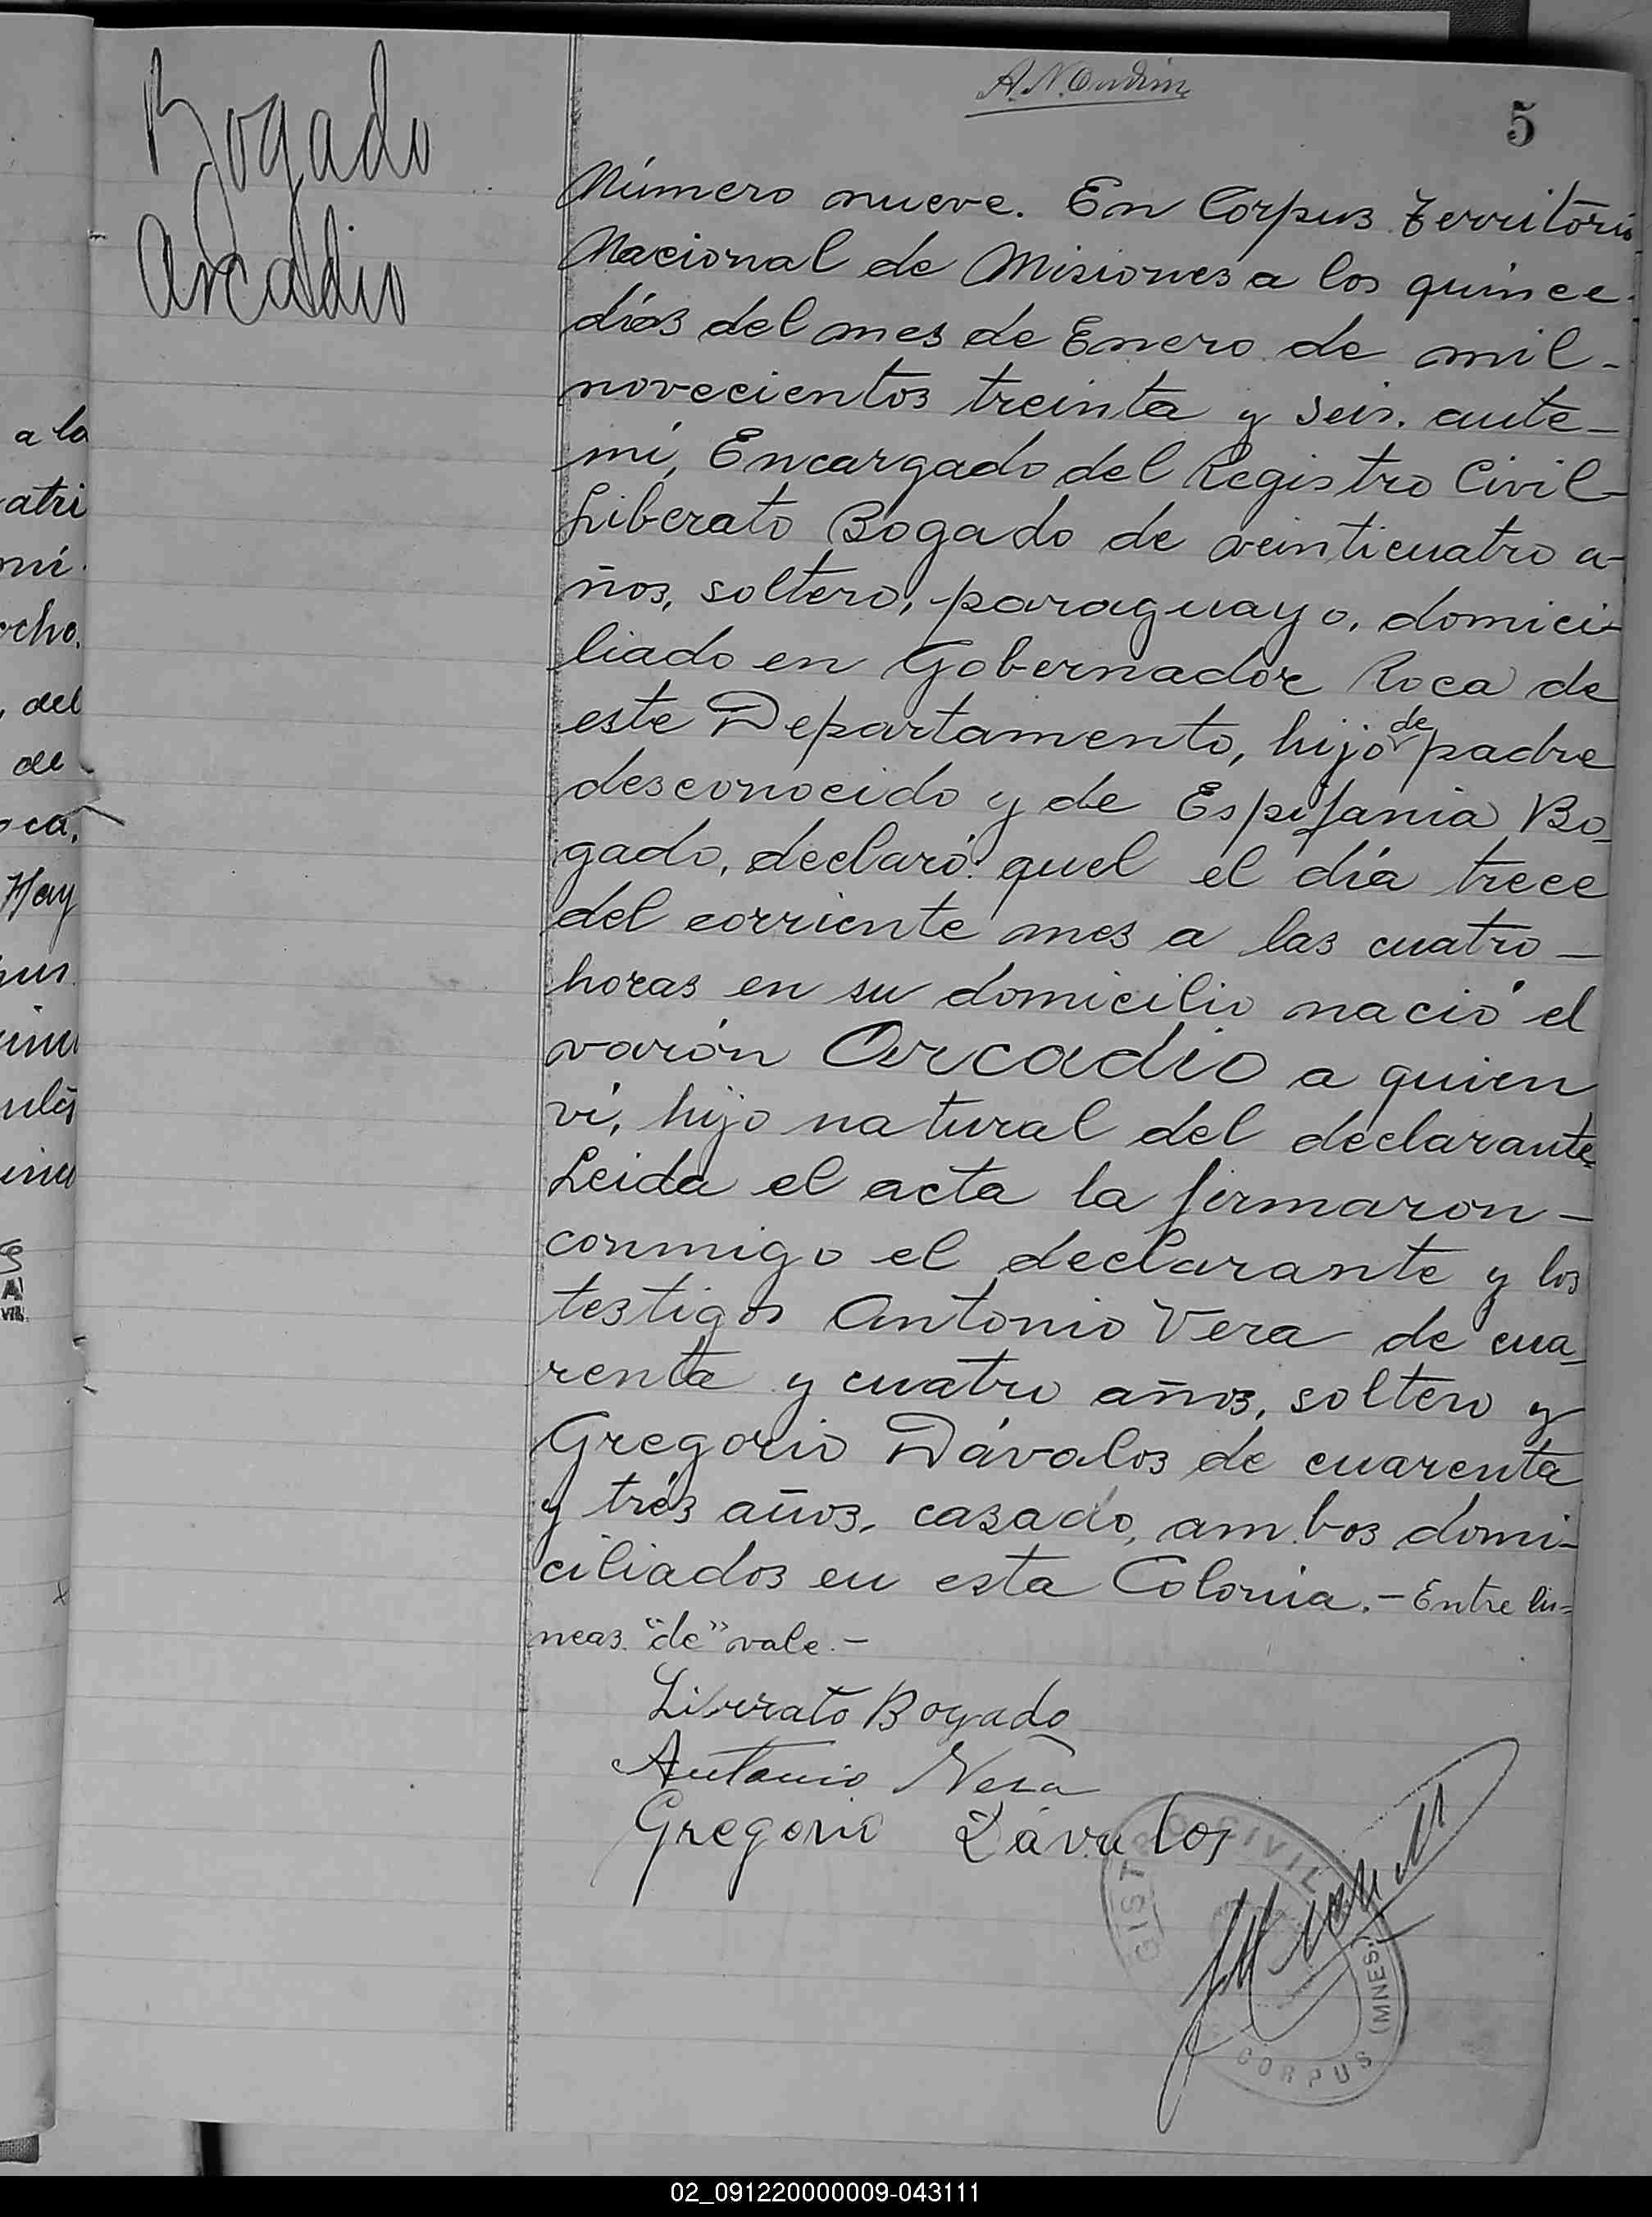 Bogado
Arcadio
5
Número nueve. En Corpus Territorio
Nacional de Misiones a los quince
días del mes de Enero de mil-
novecientos treinta y seis. ante-
mí, Encargado del Registro Civil-
Liberato Bogado de veinticuatro a-
ños, soltero, paraguayo, domici-
liado en Gobernador Roca de
este Departamento, hijo de padre
desconocido y de Espifania Bo-
gado, declaró: quel el día trece
del corriente mes a las cuatro-
horas en su domicilio nació el
varón Arcadio a quien
ví, hijo natural del declarante
Leida el acta la firmaron-
conmigo el declarante y los
testigos Antonio Vera de cua-
renta y cuatro años, soltero y
Gregorio Dávalos de cuarenta
y trés años, casado, ambos domi-
ciliados en esta Colonia.- Entre lí=
neas. "de" vale.-
Liberato Bogado
Antonio Vera
Gregorio Dávalos
GISTRO CIVIL
CORPUS (MNES.)
a la
atri
mi.
ocho.
, del
de
oca,
Hay
02_091220000009-043111